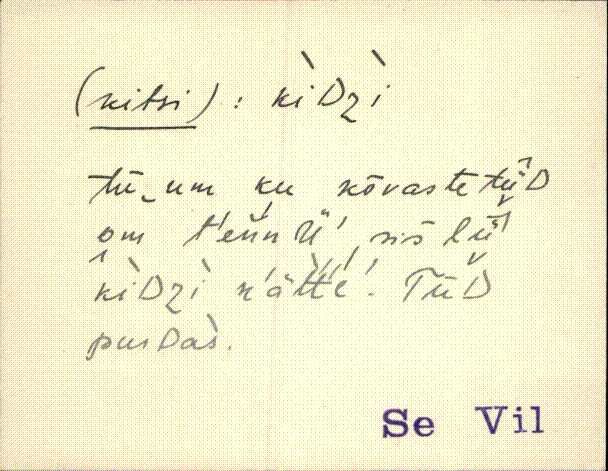 (kitsi) : kìDzì
tū‿um ku kõvaste tüD
om t'eńnü', siś lü̬
kìDzì k'ätte'. TüD
pusDàs.
Se Vil